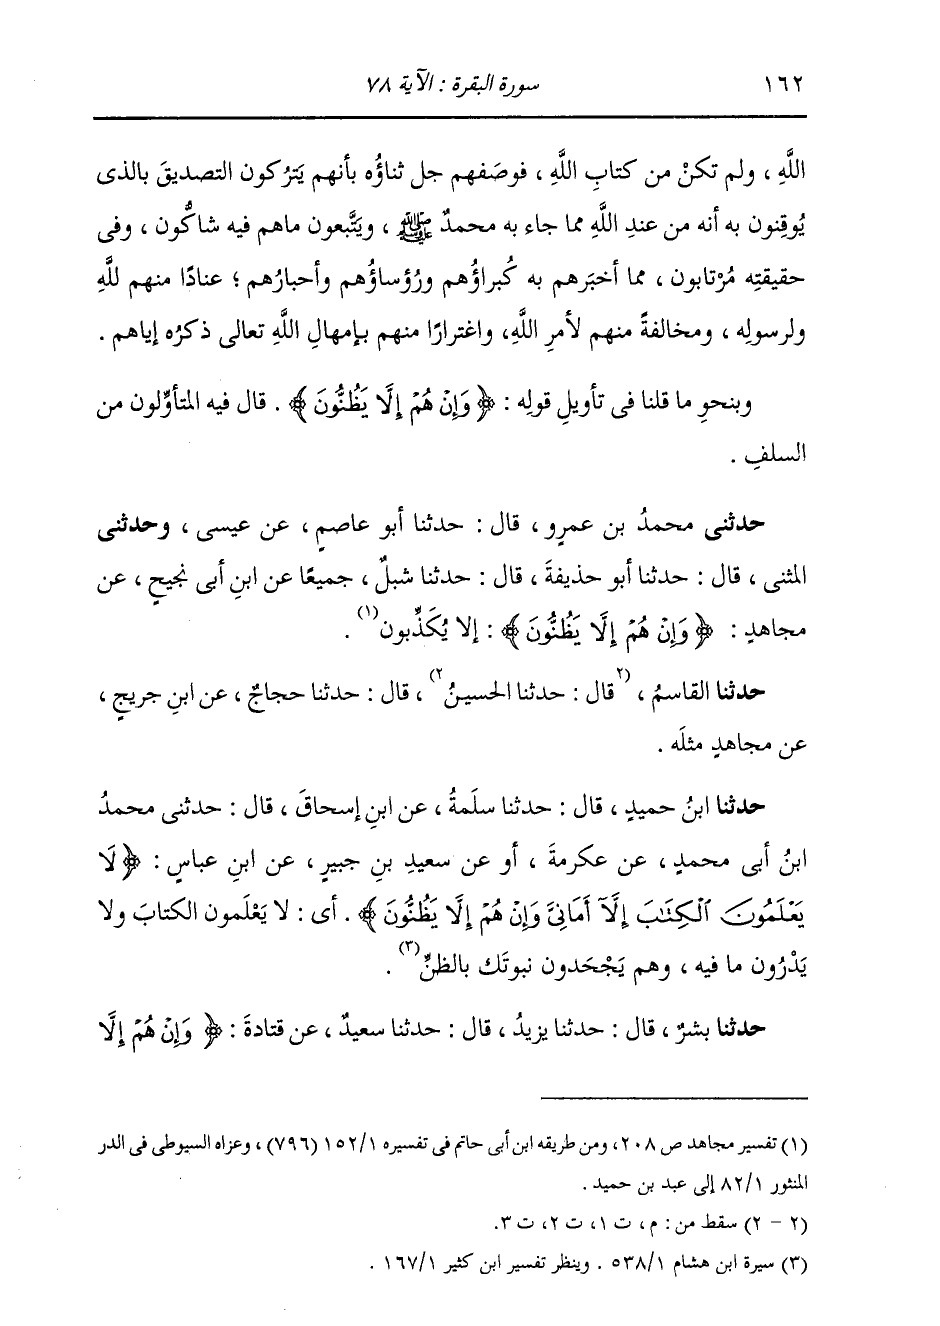 ١٦٢ سورة البقرة : الآية ٧٨
اللَّهِ ، ولم تكنْ من كتابِ اللَّهِ ، فوصَفهم جل ثناؤُه بأنهم يَتْرُكون التصديقَ بالذى
يُوقِنون به أنه من عندِ اللَّهِ مما جاء به محمدٌ ﷺ ، ويَتَّبعون ماهم فيه شاكُّون ، وفى
حقيقتِه مُرْتابون ، مما أخبَرهم به كُبراؤُهم ورُؤساؤُهم وأحبارُهم ؛ عنادًا منهم للَّهِ
ولرسولِه ، ومخالفةً منهم لأمرِ اللَّهِ، واغترارًا منهم بإمهالِ اللَّهِ تعالى ذكرُه إياهم .
وبنحوِ ما قلنا فى تأويلِ قولِه : ﴿ وَإِنْ هُمْ إِلَّا يَظُنُّونَ ﴾ . قال فيه المتأوِّلون من
السلفِ .
حدثنى محمدُ بن عمرٍو ، قال : حدثنا أبو عاصمٍ ، عن عيسى ، وحدثنى
المثنى ، قال : حدثنا أبو حذيفةَ ، قال : حدثنا شبلٌ ، جميعًا عن ابنِ أبى نجيحٍ ، عن
مجاهدٍ : ﴿ وَإِنْ هُمْ إِلَّا يَظُنُّونَ ﴾ : إلا يُكَذِّبون(١) .
حدثنا القاسمُ ، (٢قال : حدثنا الحسينُ٢) ، قال : حدثنا حجاجٌ ، عن ابنِ جريجٍ ،
عن مجاهدٍ مثلَه .
حدثنا ابنُ حميدٍ ، قال : حدثنا سلَمةُ ، عن ابنِ إسحاقَ ، قال : حدثنى محمدُ
ابنُ أبى محمدٍ ، عن عكرمةَ ، أو عن سعيدِ بنِ جبيرٍ ، عن ابنِ عباسٍ : ﴿ لَا
يَعْلَمُونَ ٱلْكِتَٰبَ إِلَّآ أَمَانِىَّ وَإِنْ هُمْ إِلَّا يَظُنُّونَ ﴾ . أى : لا يَعْلَمون الكتابَ ولا
يَدْرُون ما فيه ، وهم يَجْحَدون نبوتَك بالظنِّ(٣) .
حدثنا بشرٌ ، قال : حدثنا يزيدُ ، قال : حدثنا سعيدٌ ، عن قتادةَ : ﴿ وَإِنْ هُمْ إِلَّا
(١) تفسير مجاهد ص ٢٠٨، ومن طريقه ابن أبى حاتم فى تفسيره ١/ ١٥٢ (٧٩٦) ، وعزاه السيوطى فى الدر
المنثور ١/ ٨٢ إلى عبد بن حميد .
(٢ - ٢) سقط من : م ، ت ١، ت ٢، ت ٣.
(٣) سيرة ابن هشام ١/ ٥٣٨ . وينظر تفسير ابن كثير ١/ ١٦٧ .